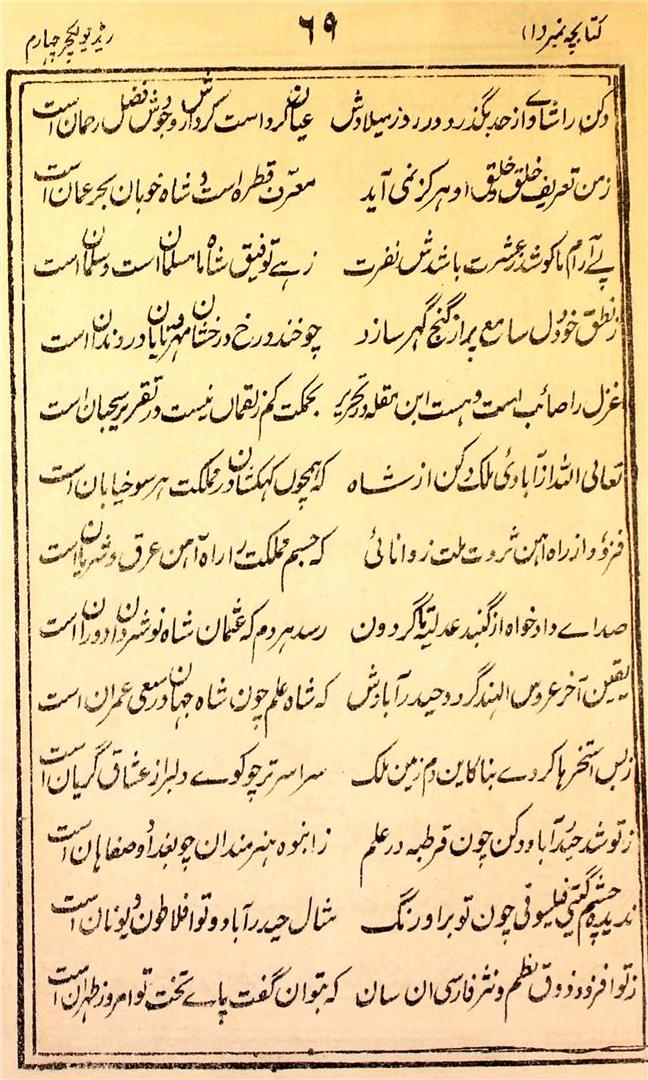 کتابچہ نمبر (۱) ۶۹ ریڈیو لیکچر چہارم
دکن را شادے از حد بگذرد در روز میلادش عیان کرد است کردارش وجوش فضل رحمان است
زمن تعریف خلق و خلق او هرگز نمی آید معرف قطره است و شاه خوبان بحر عمان است
پے آرام ما کوشد ز عشرت باشدش نفرت زہے توفیق شاه ما مسلمان است و سلمان است
ز نطق خود دل سامع پر از گنج گہر سازد چو خندد رخ درخشان مہر و یا باران دندان است
غزل را صائب است و ہست ابن مقلہ در تحریر بحکمت کم ز لقمان نیست در تقریر سحبان است
تعالی اللہ از آبادیٔ ملک دکن از شاه کہ ہمچوں کہکشان در مملکت ہر سو خیابان است
فزود از راه آہن ثروت ملت ز دانائی کہ جسم مملکت را راه آہن عرق و شریان است
صداے دادخواه از گنبد عدلیہ تا گردون رسد ہر دم کہ عثمان شاه نوشیروان دوران است
یقین آخر عروس الہند گردد حیدرآبادش کہ شاه علم چون شاه جہان در سعی عمران است
ز بس استخرہا کردے بنا کاین دم زمین ملک سراسر تر چو کوے دلبر از عشاق گریان است
ز تو شد حیدرآباد دکن چون قرطبہ در علم ز انبوه ہنرمندان چو بغداد و صفاہان است
ندیده چشم گیتی فیلسوفی چون تو بر اورنگ مثال حیدرآباد و تو افلاطون و یونان است
ز تو افزود ذوق نظم و نثر فارسی ان سان کہ بتوان گفت پاے تخت تو امروز طہران است